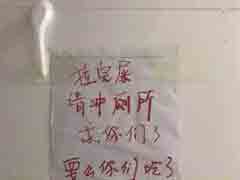 拉完屎
请冲厕所
求你们了
要么你们吃了